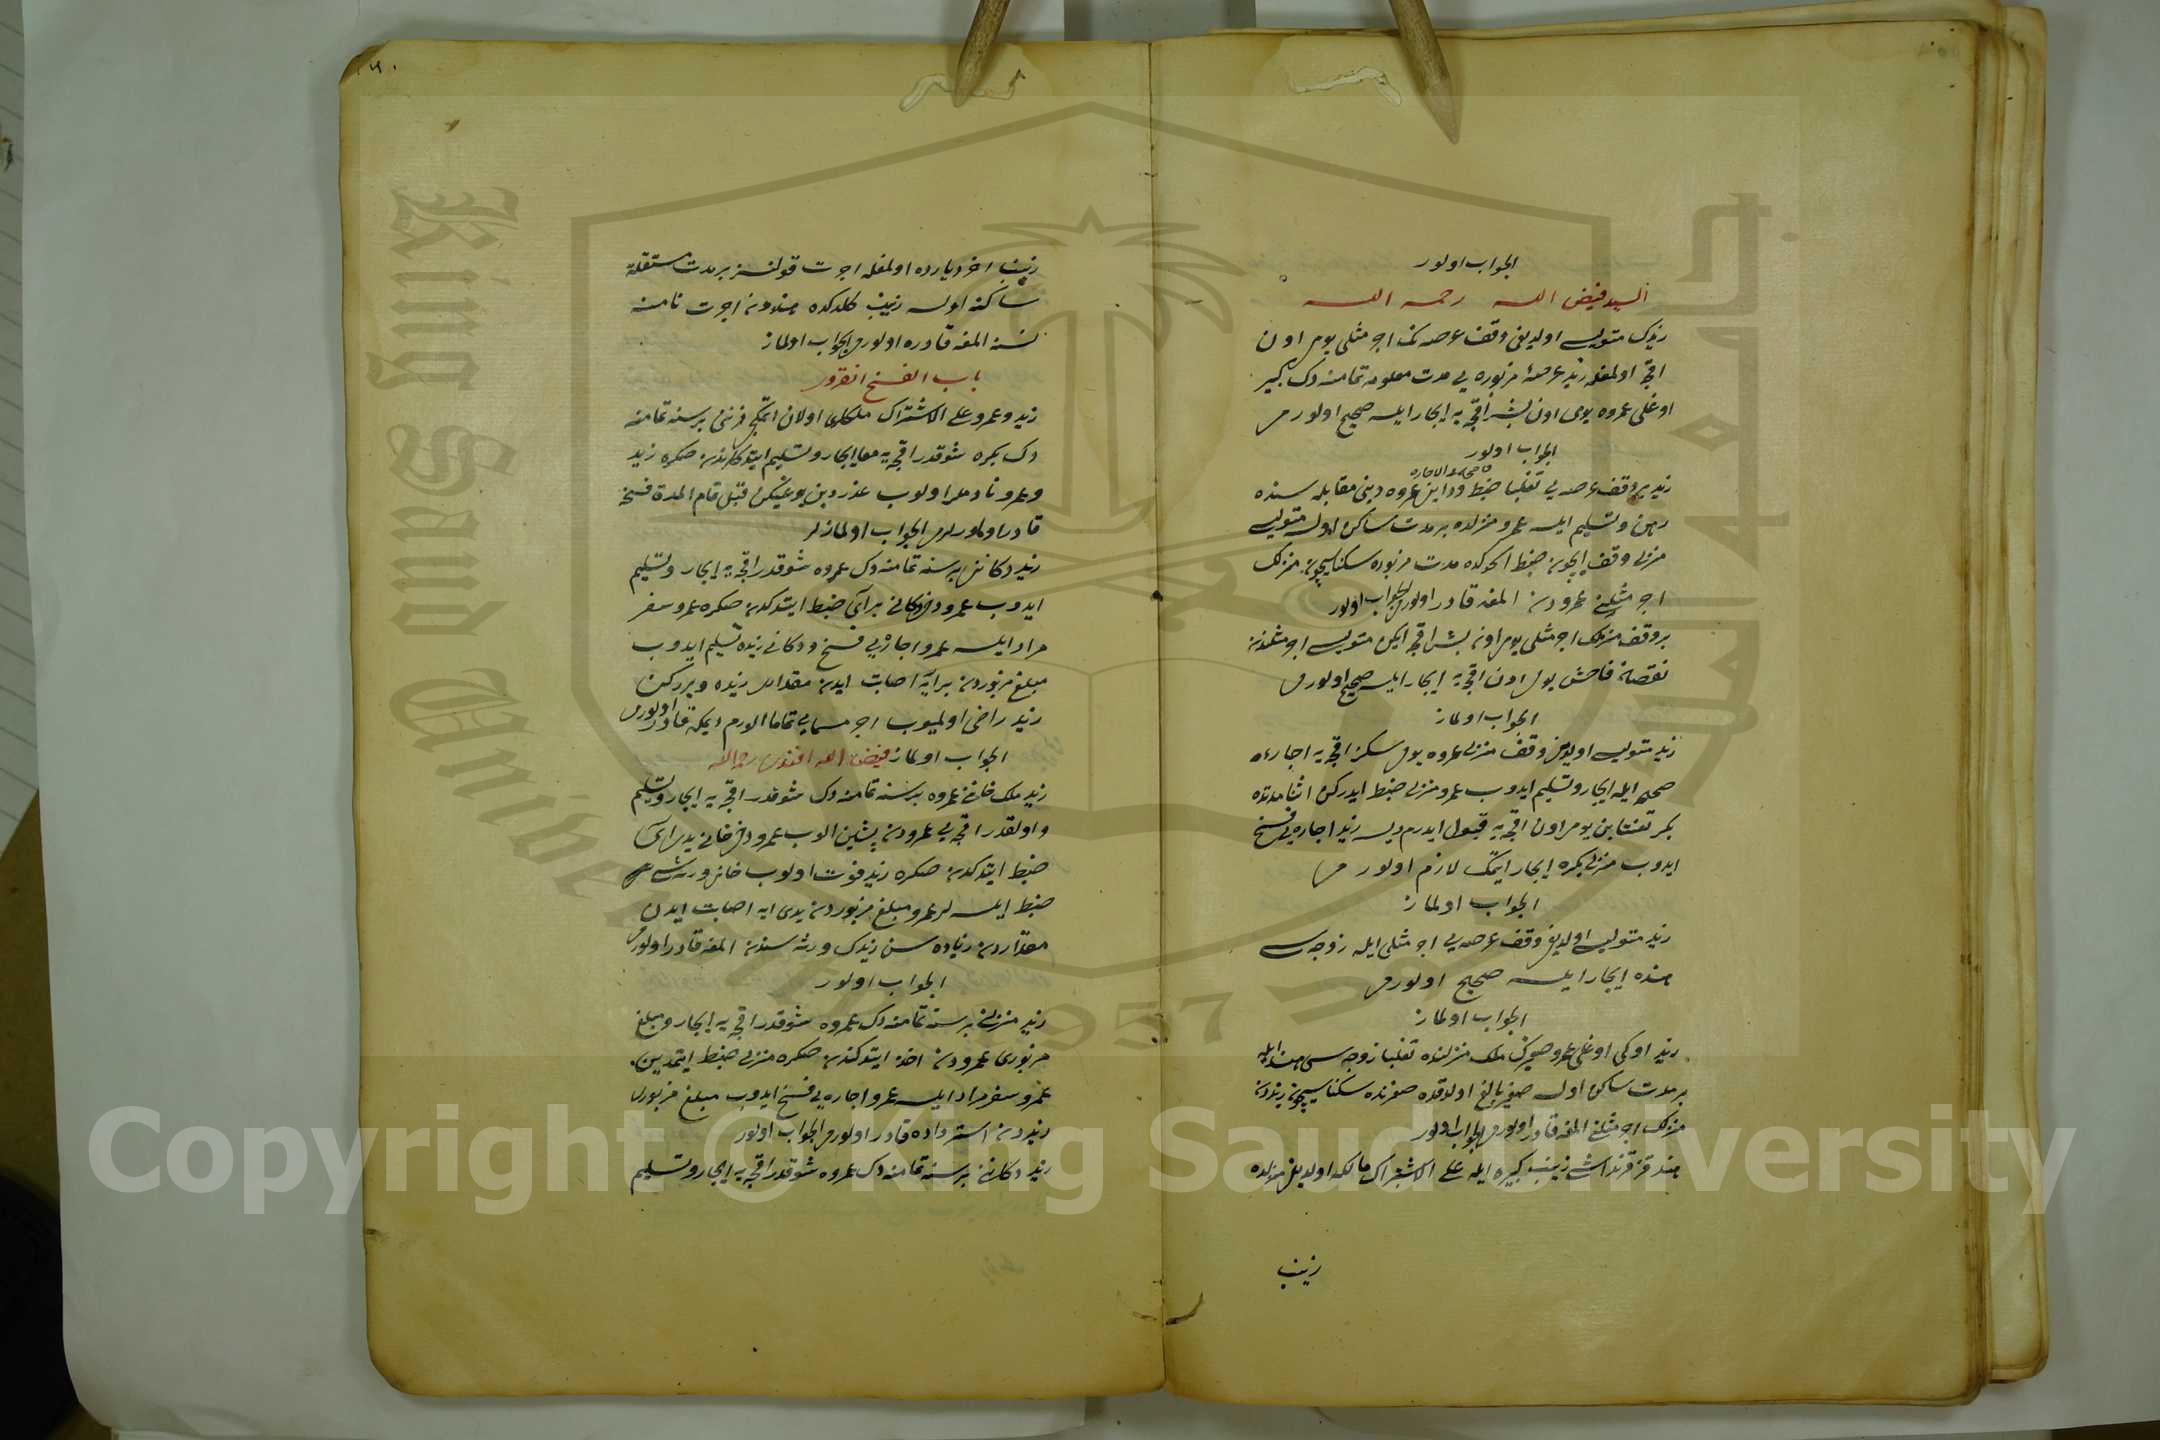 الجواب اولور
السيد فيض الله رحمه الله
زيدك متوليسى اولديغى وقف عرصه نك اجر مثلى يومى اون
اقچه اولمغله زيد عرصهٔ مزبوره يى مدت معلومه تمامنه دك كبير
اوغلى عمروه يومى اون بش اقچه يه ايجار ايلسه صحيح اولورمى
الجواب اولور
زيد بر وقف عرصه يى تغلبا ضبط ودايني عمروه دينى مقابله سنده
رهن وتسليم ايلسه عمرو منزلده بر مدت ساكن اولسه متوليسى
منزلى وقف ايچون ضبط ايتدكده مدت مزبوره سكناسيچون منزلك
اجر مثلنى عمرودن المغه قادر اولورمى الجواب اولور
بر وقف منزلك اجر مثلى يومى اون بش اقچه ايكن متوليسى اجر مثلندن
نقصان فاحش يومى اون اقچه يه ايجار ايلسه صحيح اولورمى
الجواب اولماز
زيد متوليسى اولديغى وقف منزلى عمروه يومى سكز اقچه يه اجارهٔ
صحيحه ايله ايجار وتسليم ايدوب عمرو منزلى ضبط ايدركن اثناء مدتده
بكر تعنتا بن يومى اون اقچه يه قبول ايدرم ديسه زيد اجاره يى فسخ
ايدوب منزلى بكره ايجار ايتمك لازم اولورمى
الجواب اولماز
زيد متوليسى اولديغى وقف عرصه يى اجر مثلى ايله زوجه سى
هنده ايجار ايلسه صحيح اولورمى
الجواب اولماز
زيد اوكى اوغلى عمرو صغيرك ملك منزلنده تغلبا زوجه سى هند ايله
بر مدت ساكن اولسه صغير بالغ اولدقده صغرنده سكناسيچون زيددن
منزلك اجر مثلنى المغه قادر اولورمى الجواب اولور
هند قز قرنداشى زينب كبيره ايله على الاشتراك مالكه اولديغى منزلده
زينب
زينب اخر ديارده اولمغله اجرت قولنسز بر مدت مستقلة
ساكنه اولسه زينب كلدكده هنددن اجرت نامنه
نسنه المغه قادره اولورمى الجواب اولماز
باب الفسخ انقروى
زيد وعمرو على الاشتراك ملكلرى اولان اتمكجى فرننى بر سنه تمامنه
دك بكره شو قدر اقچه يه معا ايجار وتسليم ايتدكلرندن صكره زيد
وعمرو نادملر اولوب عذر دين يوغيكن قبل تمام المدة فسخه
قادر اولورلرمى الجواب اولمازلر
زيد دكاننى بر سنه تمامنه دك عمروه شو قدر اقچه يه ايجار وتسليم
ايدوب عمرو دخى دكانى بر آى ضبط ايتدكدن صكره عمرو سفر
مراد ايلسه عمرو اجاره يى فسخ ودكانى زيده تسليم ايدوب
مبلغ مزبوردن بر آيه اصابت ايدن مقدارى زيده ويرركن
زيد راضى اولميوب اجر مسمايى تماما الورم ديمكه قادر اولورمى
الجواب اولماز فيض الله افندى رحمه الله
زيد ملك خاننى عمروه بر سنه تمامنه دك شو قدر اقچه يه ايجار وتسليم
واولقدر اقچه يى عمرودن پشين الوب عمرو دخى خانى يدى آى
ضبط ايتدكدن صكره زيد فوت اولوب خانى ورثه سى
ضبط ايلسه لر عمرو مبلغ مزبوردن يدى ايه اصابت ايدن
مقداردن زياده سن زيدك ورثه سندن المغه قادر اولورمى
الجواب اولور
زيد منزلنى بر سنه تمامنه دك عمروه شو قدر اقچه يه ايجار ومبلغ
مزبورى عمرودن اخذ ايتدكدن صكره منزلى ضبط ايتمدين
عمرو سفر مراد ايلسه عمرو اجاره يى فسخ ايدوب مبلغ مزبورى
زيددن استرداده قادر اولورمى الجواب اولور
زيد دكاننى بر سنه تمامنه دك عمروه شو قدر اقچه يه ايجار وتسليم
King Saud University
1957
Copyright © King Saud University